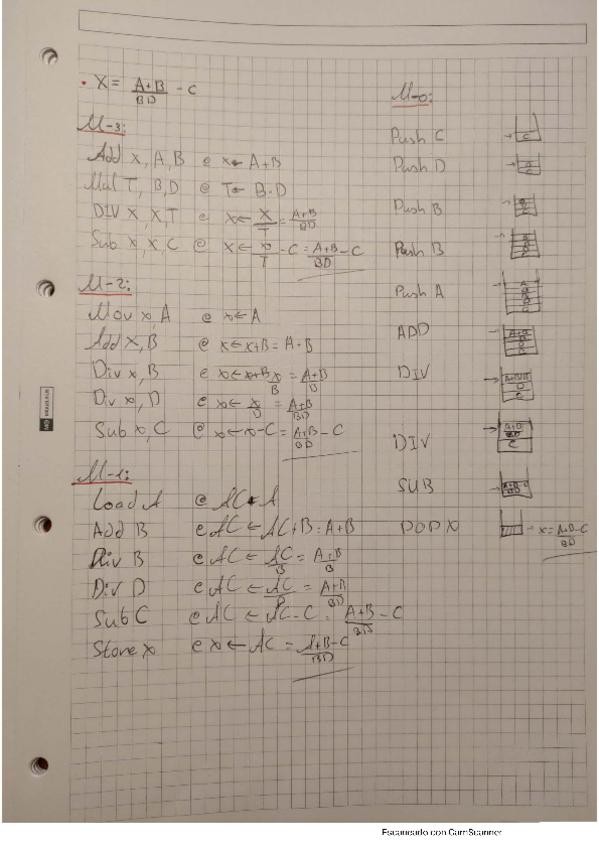 • X = (A+B)/(BD) - C
M-3:
Add X, A, B @ X ← A+B
Mul T, B, D @ T ← B·D
DIV X, X, T @ X ← X/T = (A+B)/(BD)
Sub X, X, C @ X ← X/T - C = (A+B)/(BD) - C
M-2:
Mov X, A @ X ← A
Add X, B @ X ← X+B = A+B
Div X, B @ X ← X+B X/B = (A+B)/B
Div X, D @ X ← X/D = (A+B)/(BD)
Sub X, C @ X ← X-C = (A+B)/(BD) - C
M-1:
Load A @ AC ← A
Add B @ AC ← AC+B = A+B
Div B @ AC ← AC/B = (A+B)/B
Div D @ AC ← AC/D = (A+B)/(BD)
Sub C @ AC ← AC-C = (A+B)/(BD) - C
Store X @ X ← AC = (A+B-C)/(BD)
M-0:
Push C
C
Push D
D
C
Push B
B
D
C
Push B
B
B
D
C
Push A
A
B
B
D
C
ADD
A+B
B
D
C
DIV
A+B/B
D
C
DIV
(A+B)/(BD)
C
SUB
POP X
X = (A+B-C)/(BD)
Escaneado con CamScanner